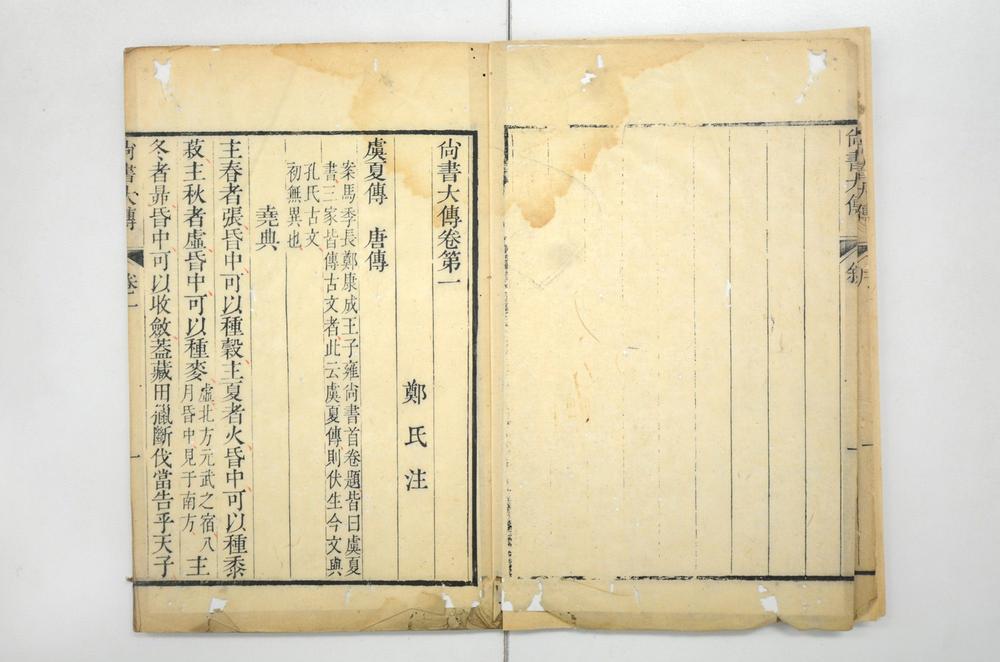 尙書大傳卷第一
鄭氏注
虞夏傳　唐傳
案馬季長鄭康成王子雍尙書首卷題皆曰虞夏
書三家皆傳古文者此云虞夏傳則伏生今文與
孔氏古文
初無異也
堯典
主春者張昏中可以種穀主夏者火昏中可以種黍
菽主秋者虛昏中可以種麥虛北方元武之宿八月昏中見于南方主
冬者昴昏中可以收斂葢藏田獵斷伐當告乎天子
尙書大傳
卷一
一
尙書大傳
一